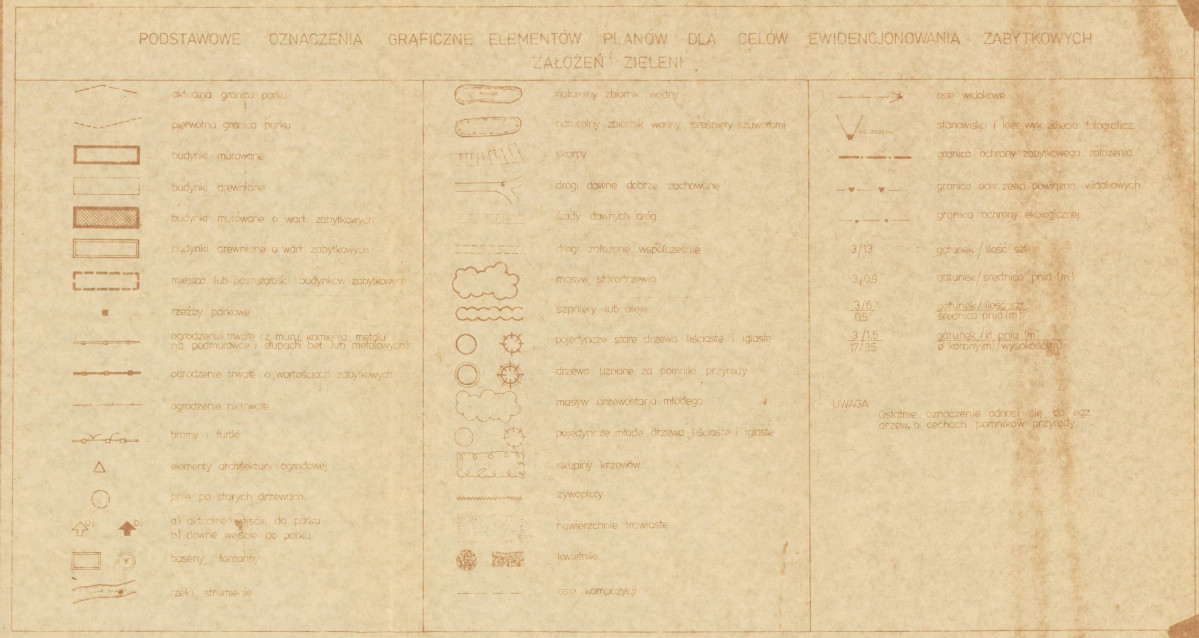 PODSTAWOWE OZNACZENIA GRAFICZNE ELEMENTÓW PLANÓW DLA CELÓW EWIDENCJONOWANIA ZABYTKOWYCH
ZAŁOŻEŃ ZIELENI
aktualna granica parku
pierwotna granica parku
budynki murowane
budynki drewniane
budynki murowane o wart. zabytkowych
budynki drewniane o wart. zabytkowych
miejsca lub pozostałości budynków zabytkowych
rzeźby parkowe
ogrodzenie trwałe (z muru, kamienia, metalu
na podmurówce i słupach bet. lub metalowych)
ogrodzenie trwałe o wartościach zabytkowych
ogrodzenie nietrwałe
bramy i furtki
elementy architektury ogrodowej
pnie po starych drzewach
a) b) a) aktualne wejście do parku
b) dawne wejście do parku
baseny, fontanny
rzeki, strumienie
naturalny zbiornik wodny
naturalny zbiornik wodny zarośnięty szuwarami
skarpy
drogi dawne dobrze zachowane
ślady dawnych dróg
drogi założone współcześnie
masyw starodrzewia
szpalery lub aleje
pojedyncze stare drzewa liściaste i iglaste
drzewa uznane za pomniki przyrody
masyw drzewostanu młodego
pojedyncze młode drzewa liściaste i iglaste
skupiny krzewów
żywopłoty
nawierzchnie trawiaste
kwietniki
osie kompozycji
osie widokowe
stanowisko i kier. wyk. zdjęcia fotograficz.
granica ochrony zabytkowego założenia
granica ochrony ekologicznej
3/13 gatunek / ilość szt.
gatunek / średnica pnia (m)
3/6 gatunek / ilość szt.
0.5 średnica pnia (m)
3/1.5 gatunek / ø pnia (m)
17/35 ø korony (m) / wysokość (m)
UWAGA
Ostatnie oznaczenie odnosi się do egz.
drzew o cechach pomników przyrody.